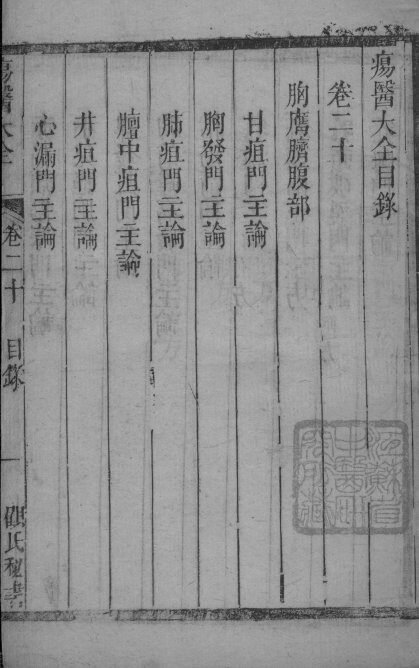 瘍醫大全目錄
卷二十
胸膺臍腹部
甘疽門主論
胸發門主論
肺疽門主論
膻中疽門主論
井疽門主論
心漏門主論
瘍醫大全 卷二十 目錄 一 顧氏秘書